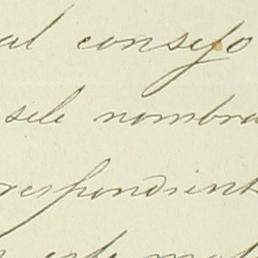 al consejo
sele nombra
respondient
este mat